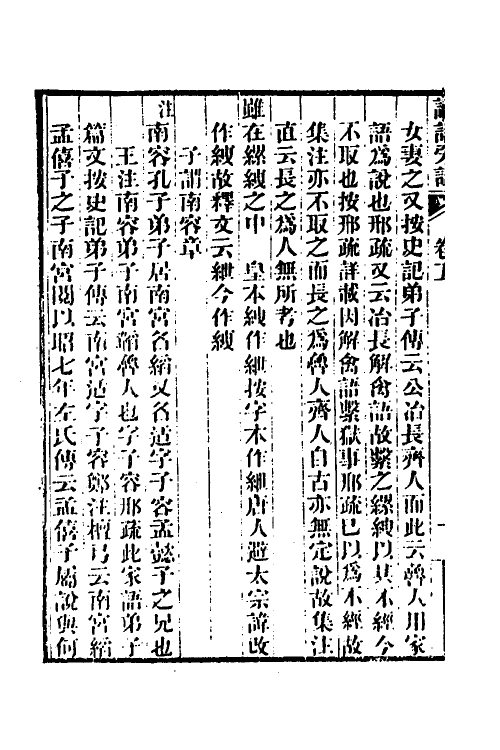 卷五
女妻之又按史記弟子傳云公冶長齊人而此云魯人用家
語爲說也邢疏又云冶長解禽語故繫之縲絏以其不經今
不取也按邢疏詳載因解禽語繫獄事邢疏已以爲不經故
集注亦不取之而長之爲魯人齊人自古亦無定說故集注
直云長之爲人無所考也
雖在縲絏之中 皇本絏作紲按字本作紲唐人避太宗諱改
作絏故釋文云紲今作絏
子謂南容章
注南容孔子弟子居南宮名縚又名适字子容孟懿子之兄也
王注南容弟子南宮縚魯人也字子容邢疏此家語弟子
篇文按史記弟子傳云南宮适字子容鄭注檀弓云南宮縚
孟僖子之子南宮閱以昭七年左氏傳云孟僖子屬說與何